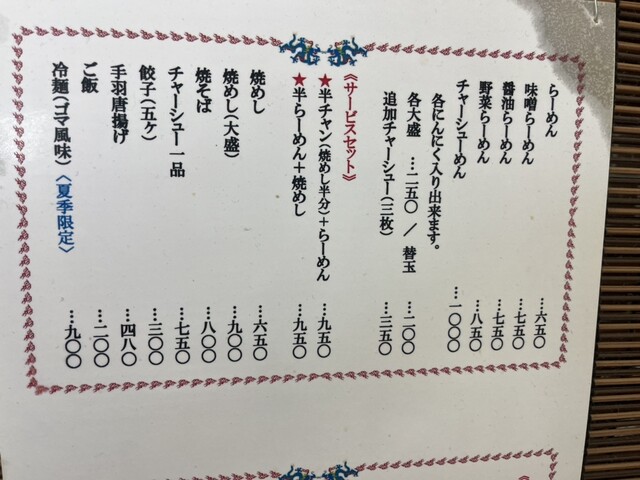 らーめん …六五〇
味噌らーめん …七五〇
醤油らーめん …七五〇
野菜らーめん …八五〇
チャーシューめん …一〇〇〇
各にんにく入り出来ます。
各大盛 …二五〇 / 替玉 …二〇〇
追加チャーシュー(三枚) …三五〇
《サービスセット》
★半チャン(焼めし半分)+らーめん …九五〇
★半らーめん+焼めし …九五〇
焼めし …六五〇
焼めし(大盛) …九〇〇
焼そば …八〇〇
チャーシュー一品 …七五〇
餃子(五ヶ) …三〇〇
手羽唐揚げ …四八〇
ご飯 …二〇〇
冷麺(ゴマ風味)〈夏季限定〉 …九〇〇